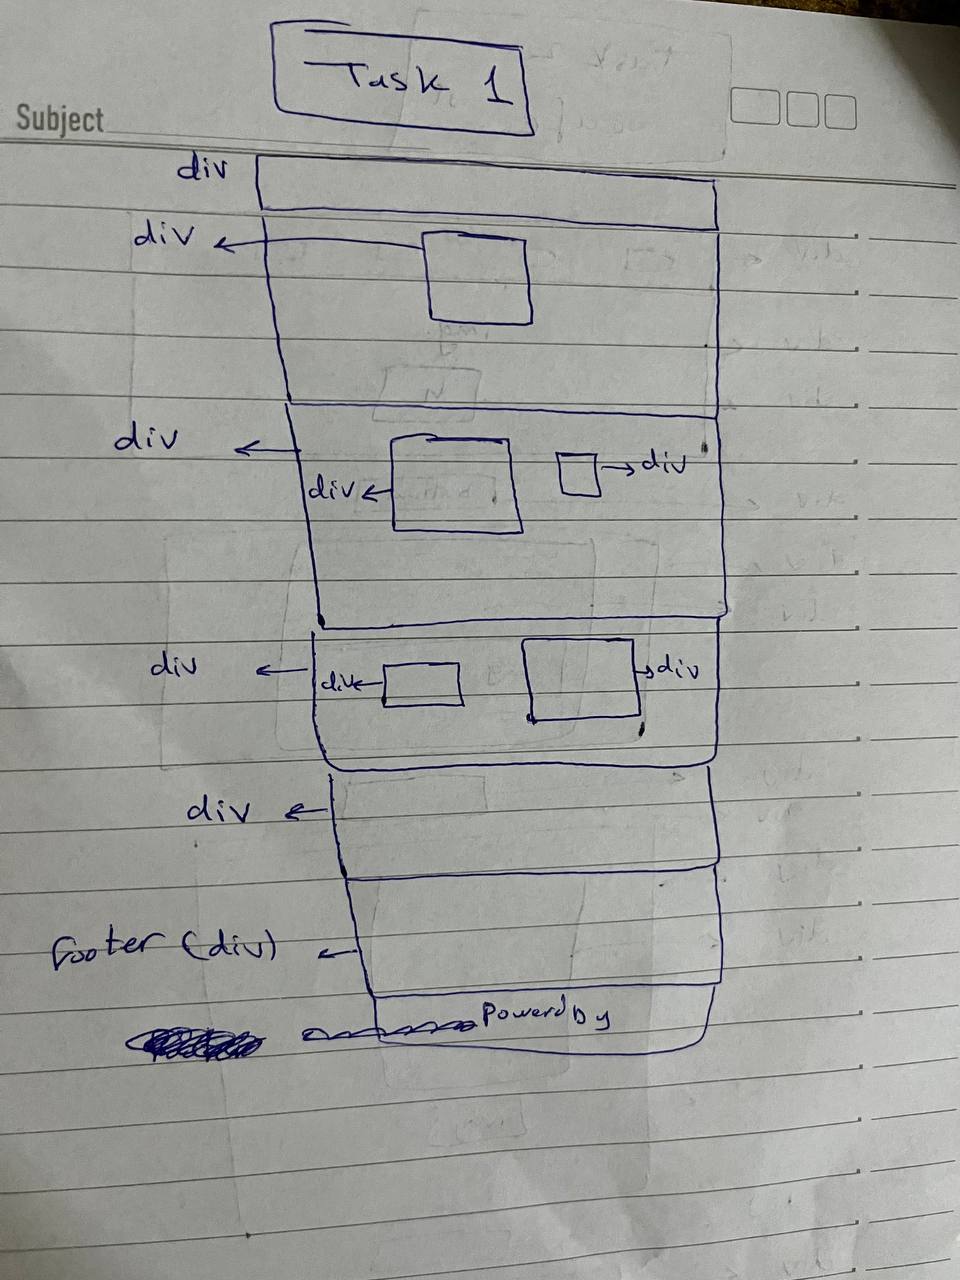 Task 1
Subject
div
div
div
div
div
div
div
div
div
Footer (div)
Powerd by